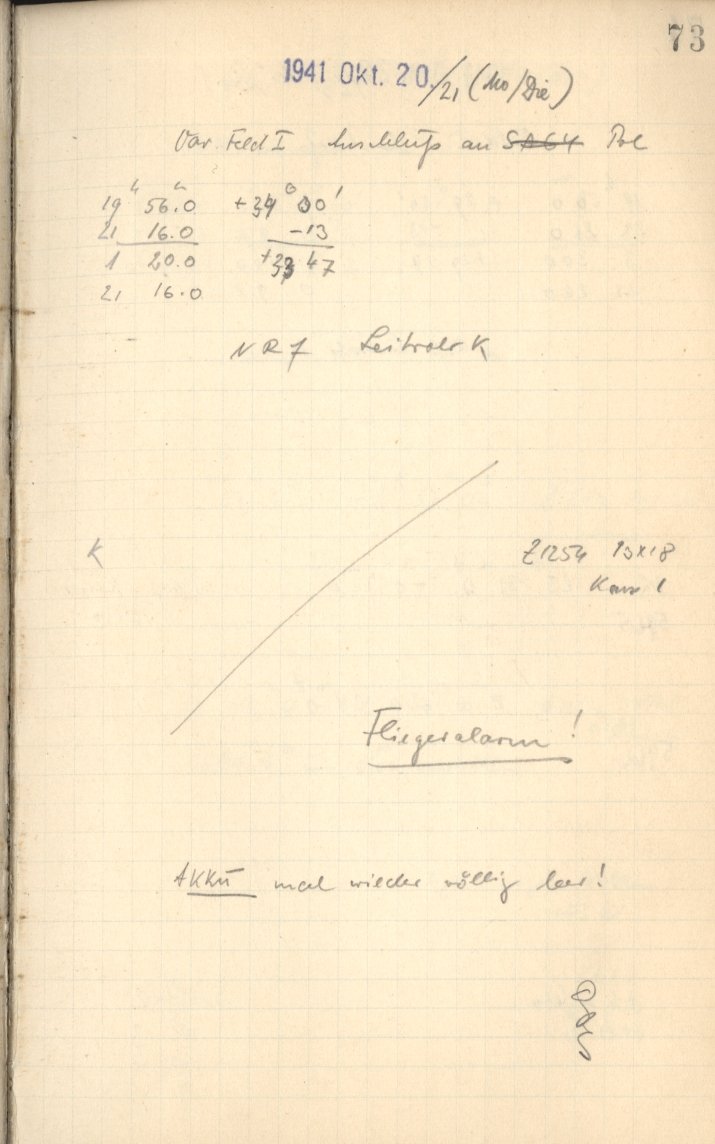 73
1941 Okt. 20./21 (Mo/Die)
Var. Feld I Anschluß an SA64 Pol
19h 56m.0 +34° 00'
21 16.0 -13
1 20.0 +33 47
21 16.0
NR7 Leitrohr K
K
Z1254 13x18
Kass 1
Fliegeralarm!
AKKU mal wieder völlig leer!